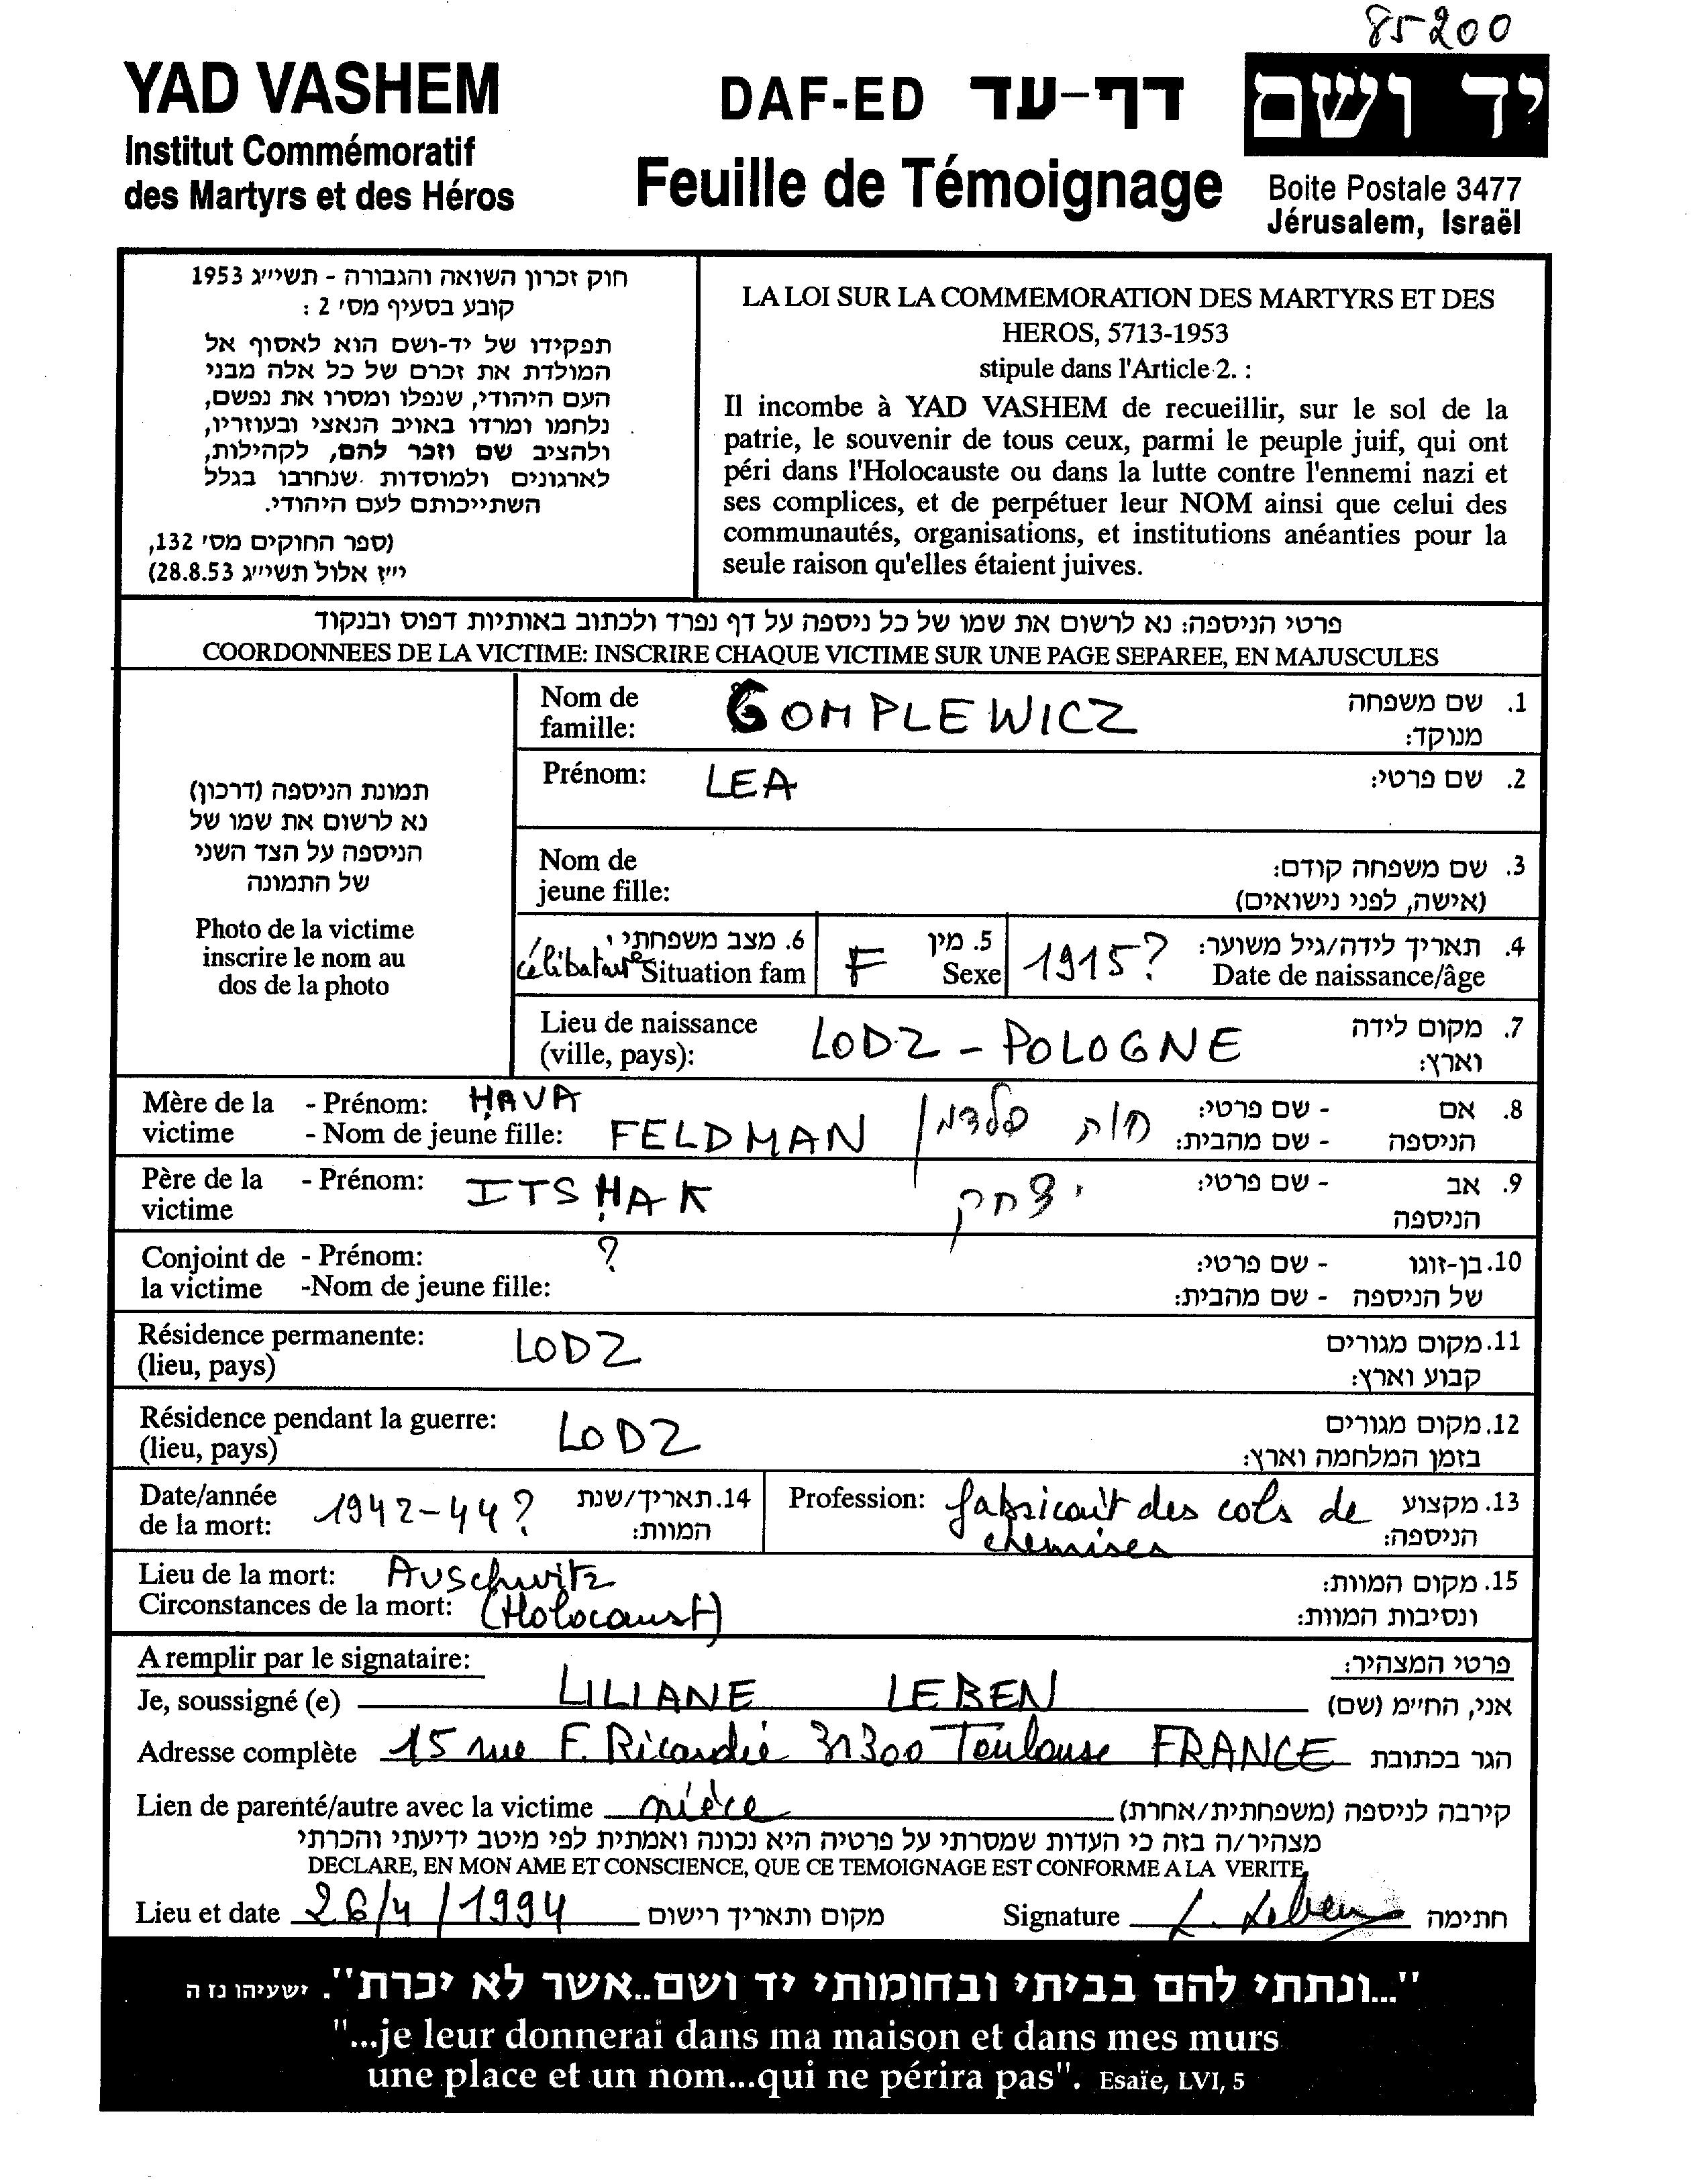 85200
YAD VASHEM
Institut Commémoratif
des Martyrs et des Héros
DAF-ED דף-עד
Feuille de Témoignage
יד ושם
Boite Postale 3477
Jérusalem, Israël
חוק זכרון השואה והגבורה - תשי״ג 1953
קובע בסעיף מס׳ 2 :
תפקידו של יד-ושם הוא לאסוף אל
המולדת את זכרם של כל אלה מבני
העם היהודי, שנפלו ומסרו את נפשם,
נלחמו ומרדו באויב הנאצי ובעוזריו,
ולהציב שם וזכר להם, לקהילות,
לארגונים ולמוסדות שנחרבו בגלל
השתייכותם לעם היהודי.
(ספר החוקים מס׳ 132,
י״ז אלול תשי״ג 28.8.53)
LA LOI SUR LA COMMEMORATION DES MARTYRS ET DES
HEROS, 5713-1953
stipule dans l'Article 2. :
Il incombe à YAD VASHEM de recueillir, sur le sol de la
patrie, le souvenir de tous ceux, parmi le peuple juif, qui ont
péri dans l'Holocauste ou dans la lutte contre l'ennemi nazi et
ses complices, et de perpétuer leur NOM ainsi que celui des
communautés, organisations, et institutions anéanties pour la
seule raison qu'elles étaient juives.
פרטי הניספה: נא לרשום את שמו של כל ניספה על דף נפרד ולכתוב באותיות דפוס ובנקוד
COORDONNEES DE LA VICTIME: INSCRIRE CHAQUE VICTIME SUR UNE PAGE SEPAREE, EN MAJUSCULES
תמונת הניספה (דרכון)
נא לרשום את שמו של
הניספה על הצד השני
של התמונה
Photo de la victime
inscrire le nom au
dos de la photo
Nom de GOMPLEWICZ 1. שם משפחה
famille: מנוקד:
Prénom: LEA 2. שם פרטי:
Nom de 3. שם משפחה קודם:
jeune fille: (אישה, לפני נישואים)
célibataire 6. מצב משפחתי F 5. מין 1915? 4. תאריך לידה/גיל משוער:
Situation fam Sexe Date de naissance/âge
Lieu de naissance LODZ - POLOGNE 7. מקום לידה
(ville, pays): וארץ:
Mère de la - Prénom: HAVA - שם פרטי: 8. אם
victime - Nom de jeune fille: FELDMAN חוה פלדמן - שם מהבית: הניספה
Père de la - Prénom: ITSHAK יצחק - שם פרטי: 9. אב
victime הניספה
Conjoint de - Prénom: ? - שם פרטי: 10. בן-זוגו
la victime -Nom de jeune fille: - שם מהבית: של הניספה
Résidence permanente: LODZ 11. מקום מגורים
(lieu, pays) קבוע וארץ:
Résidence pendant la guerre: LODZ 12. מקום מגורים
(lieu, pays) בזמן המלחמה וארץ:
Date/année 1942-44? 14. תאריך/שנת Profession: fabricait des cols de 13. מקצוע
de la mort: המוות: chemises הניספה:
Lieu de la mort: Auschwitz 15. מקום המוות:
Circonstances de la mort: (Holocaust) ונסיבות המוות:
A remplir par le signataire: פרטי המצהיר:
Je, soussigné (e) LILIANE LEBEN אני, החי״מ (שם)
Adresse complète 15 rue F. Ricardié 31300 Toulouse FRANCE הגר בכתובת
Lien de parenté/autre avec la victime nièce קירבה לניספה (משפחתית/אחרת)
מצהיר/ה בזה כי העדות שמסרתי על פרטיה היא נכונה ואמתית לפי מיטב ידיעתי והכרתי
DECLARE, EN MON AME ET CONSCIENCE, QUE CE TEMOIGNAGE EST CONFORME A LA VERITE
Lieu et date 26/4/1994 מקום ותאריך רישום Signature L. Leben חתימה
"...ונתתי להם בביתי ובחומותי יד ושם..אשר לא יכרת". ישעיהו נז ה
"...je leur donnerai dans ma maison et dans mes murs
une place et un nom...qui ne périra pas". Esaïe, LVI, 5